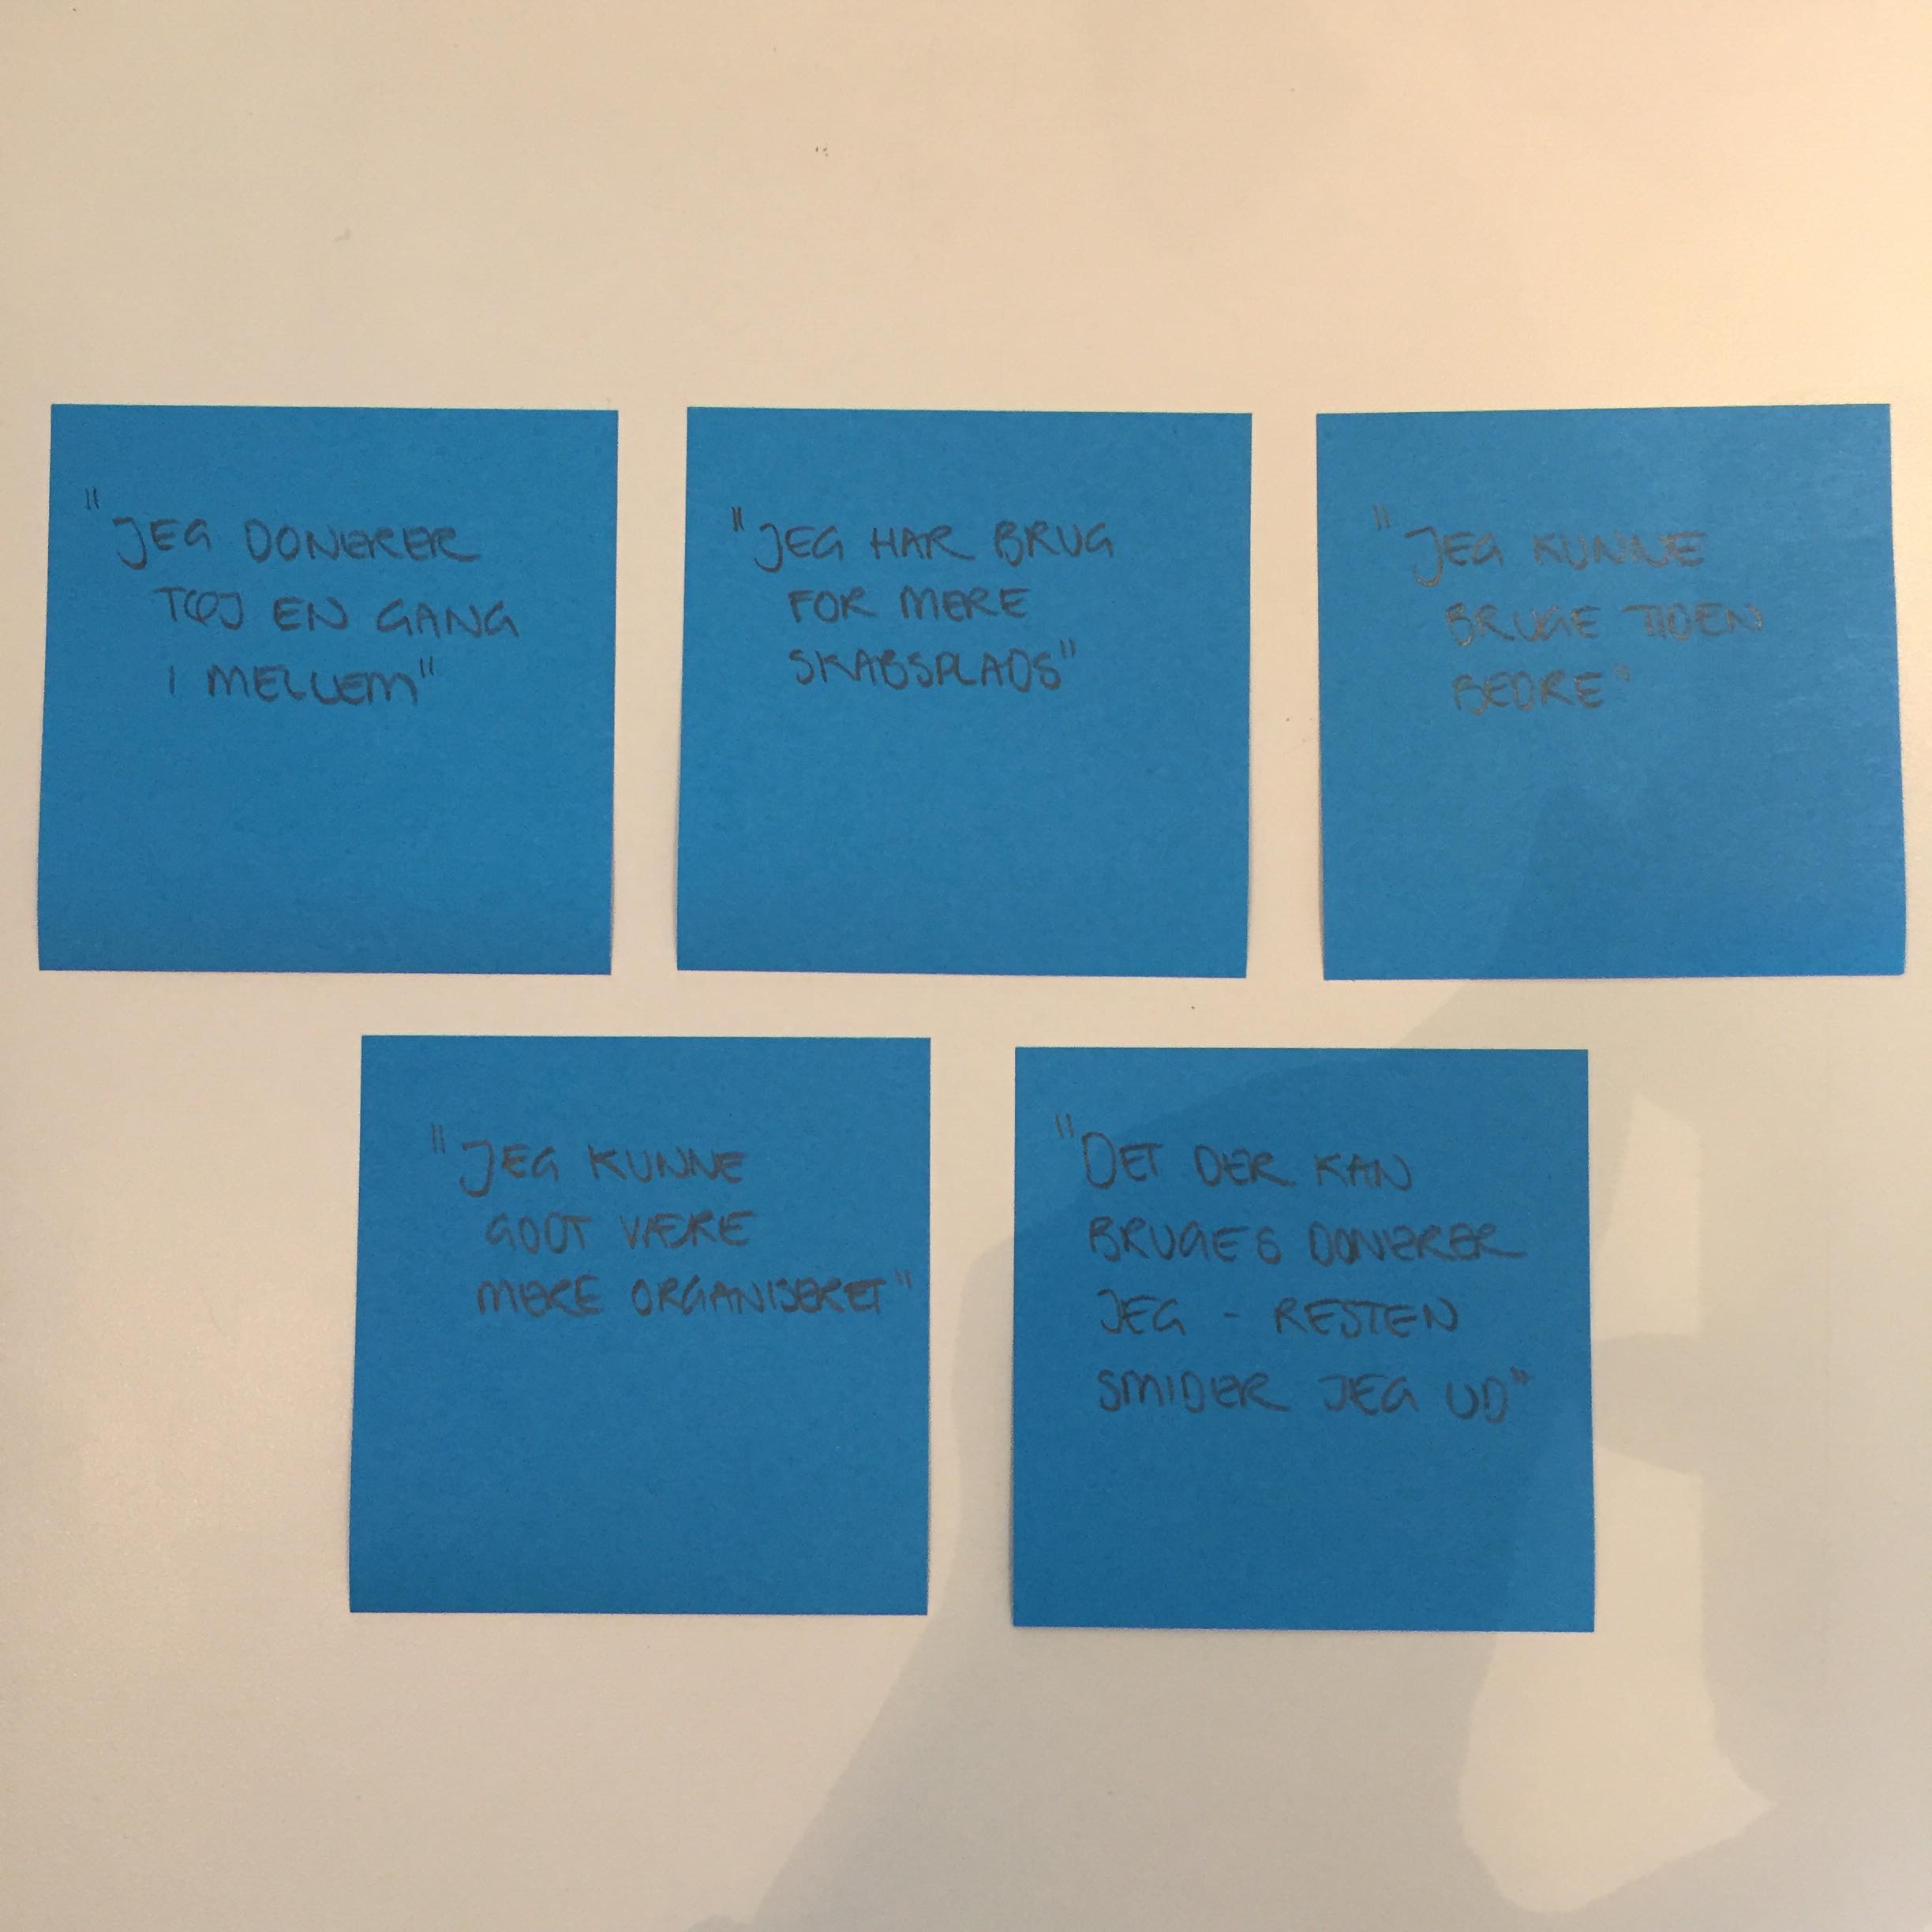 "JEG DONERER
TØJ EN GANG
I MELLEM"
"JEG HAR BRUG
FOR MERE
SKABSPLADS"
"JEG KUNNE
BRUGE TIDEN
BEDRE"
"JEG KUNNE
GODT VÆRE
MERE ORGANISERET"
"DET DER KAN
BRUGES DONERER
JEG - RESTEN
SMIDER JEG UD"